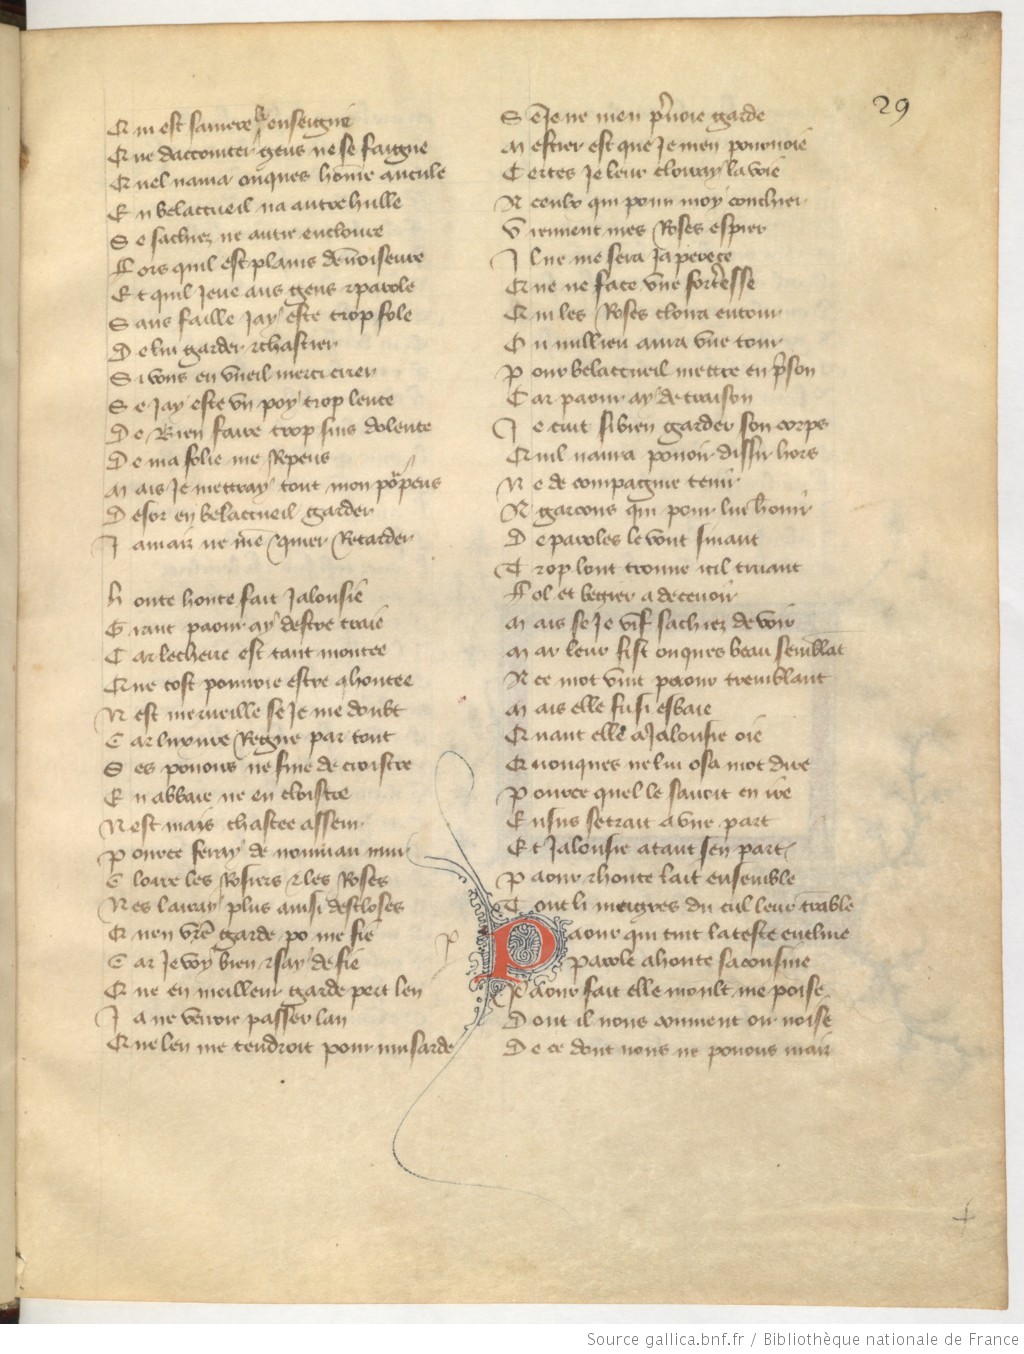 29
Qui est savivre le enseigne
Que daccointer gens ne se faigne
Quel nama onques homme ancule
En belaccueil na autre hulle
Se sachiez ne autre encloure
Fors quil est plains denvoiseure
Et quil Jeue aus gens & parole
Sans faille Jay este trop fole
De lui garder & chastier
Si vous en vueil merci crier
Se Jay este un poy trop lente
De Bien faire trop suis dolente
De ma folie me Repens
Mais Je mettray tout mon porpens
Desor en belaccueil garder
Jamais ne men quier Retarder
honte honte fait Jalousie
Grant paour ay destre traie
Car lecherie est tant montee
Que tost pourroie estre ahontee
Nest merveille se Je me doubt
Car luxure Regne par tout
Ses pouous ne fine de croistre
En abbaie ne en cloistre
Nest mais chastee asseur
Pource feray de nouviau mur
Cloire les Rosiers & les Roses
Nes lairay plus ainsi descloses
Quen vre garde po me fie
Car Je voy bien & say de fie
Que en meilleur garde pert len
Ja ne verroie passer lan
Que len me tendroit pour musarde
Se Je ne men prenoie garde
Mestier est que Je men pourvoie
Certes Je leur cloray la voie
A ceulx qui pour moy conchier
Viennent mes Roses espier
Il ne me sera Ja perece
Que ne face une forteresse
Qui les Roses clora entour
Ou millieu aura une tour
Pour belaccueil mettre en prison
Car paour ay de traison
Je cuit si bien garder son corps
Quil naura pouoir dissir hors
Ne de compagnie tenir
A garcons qui pour lui honnir
De paroles le vont suiant
Trop lont trouve icil truant
Fol et bergier a decevoir
Mais se Je vif sachiez de voir
Mar leur fist onques beau semblat
A ce mot vint paour tremblant
Mais elle fu si esbaie
Quant elle a Jalousie oie
Quonques ne lui osa mot dire
Pource quel le savoit en ire
Ensus se trait a une part
Et Jalousie atant sen part
Paour & honte lait ensemble
Tout li meigres du cul leur tramble
Paour qui tint la teste encline
Parole a honte sa cousine
Paour fait elle moult me poise
Dont il nous convient oir noise
De ce dont nous ne pouous mais